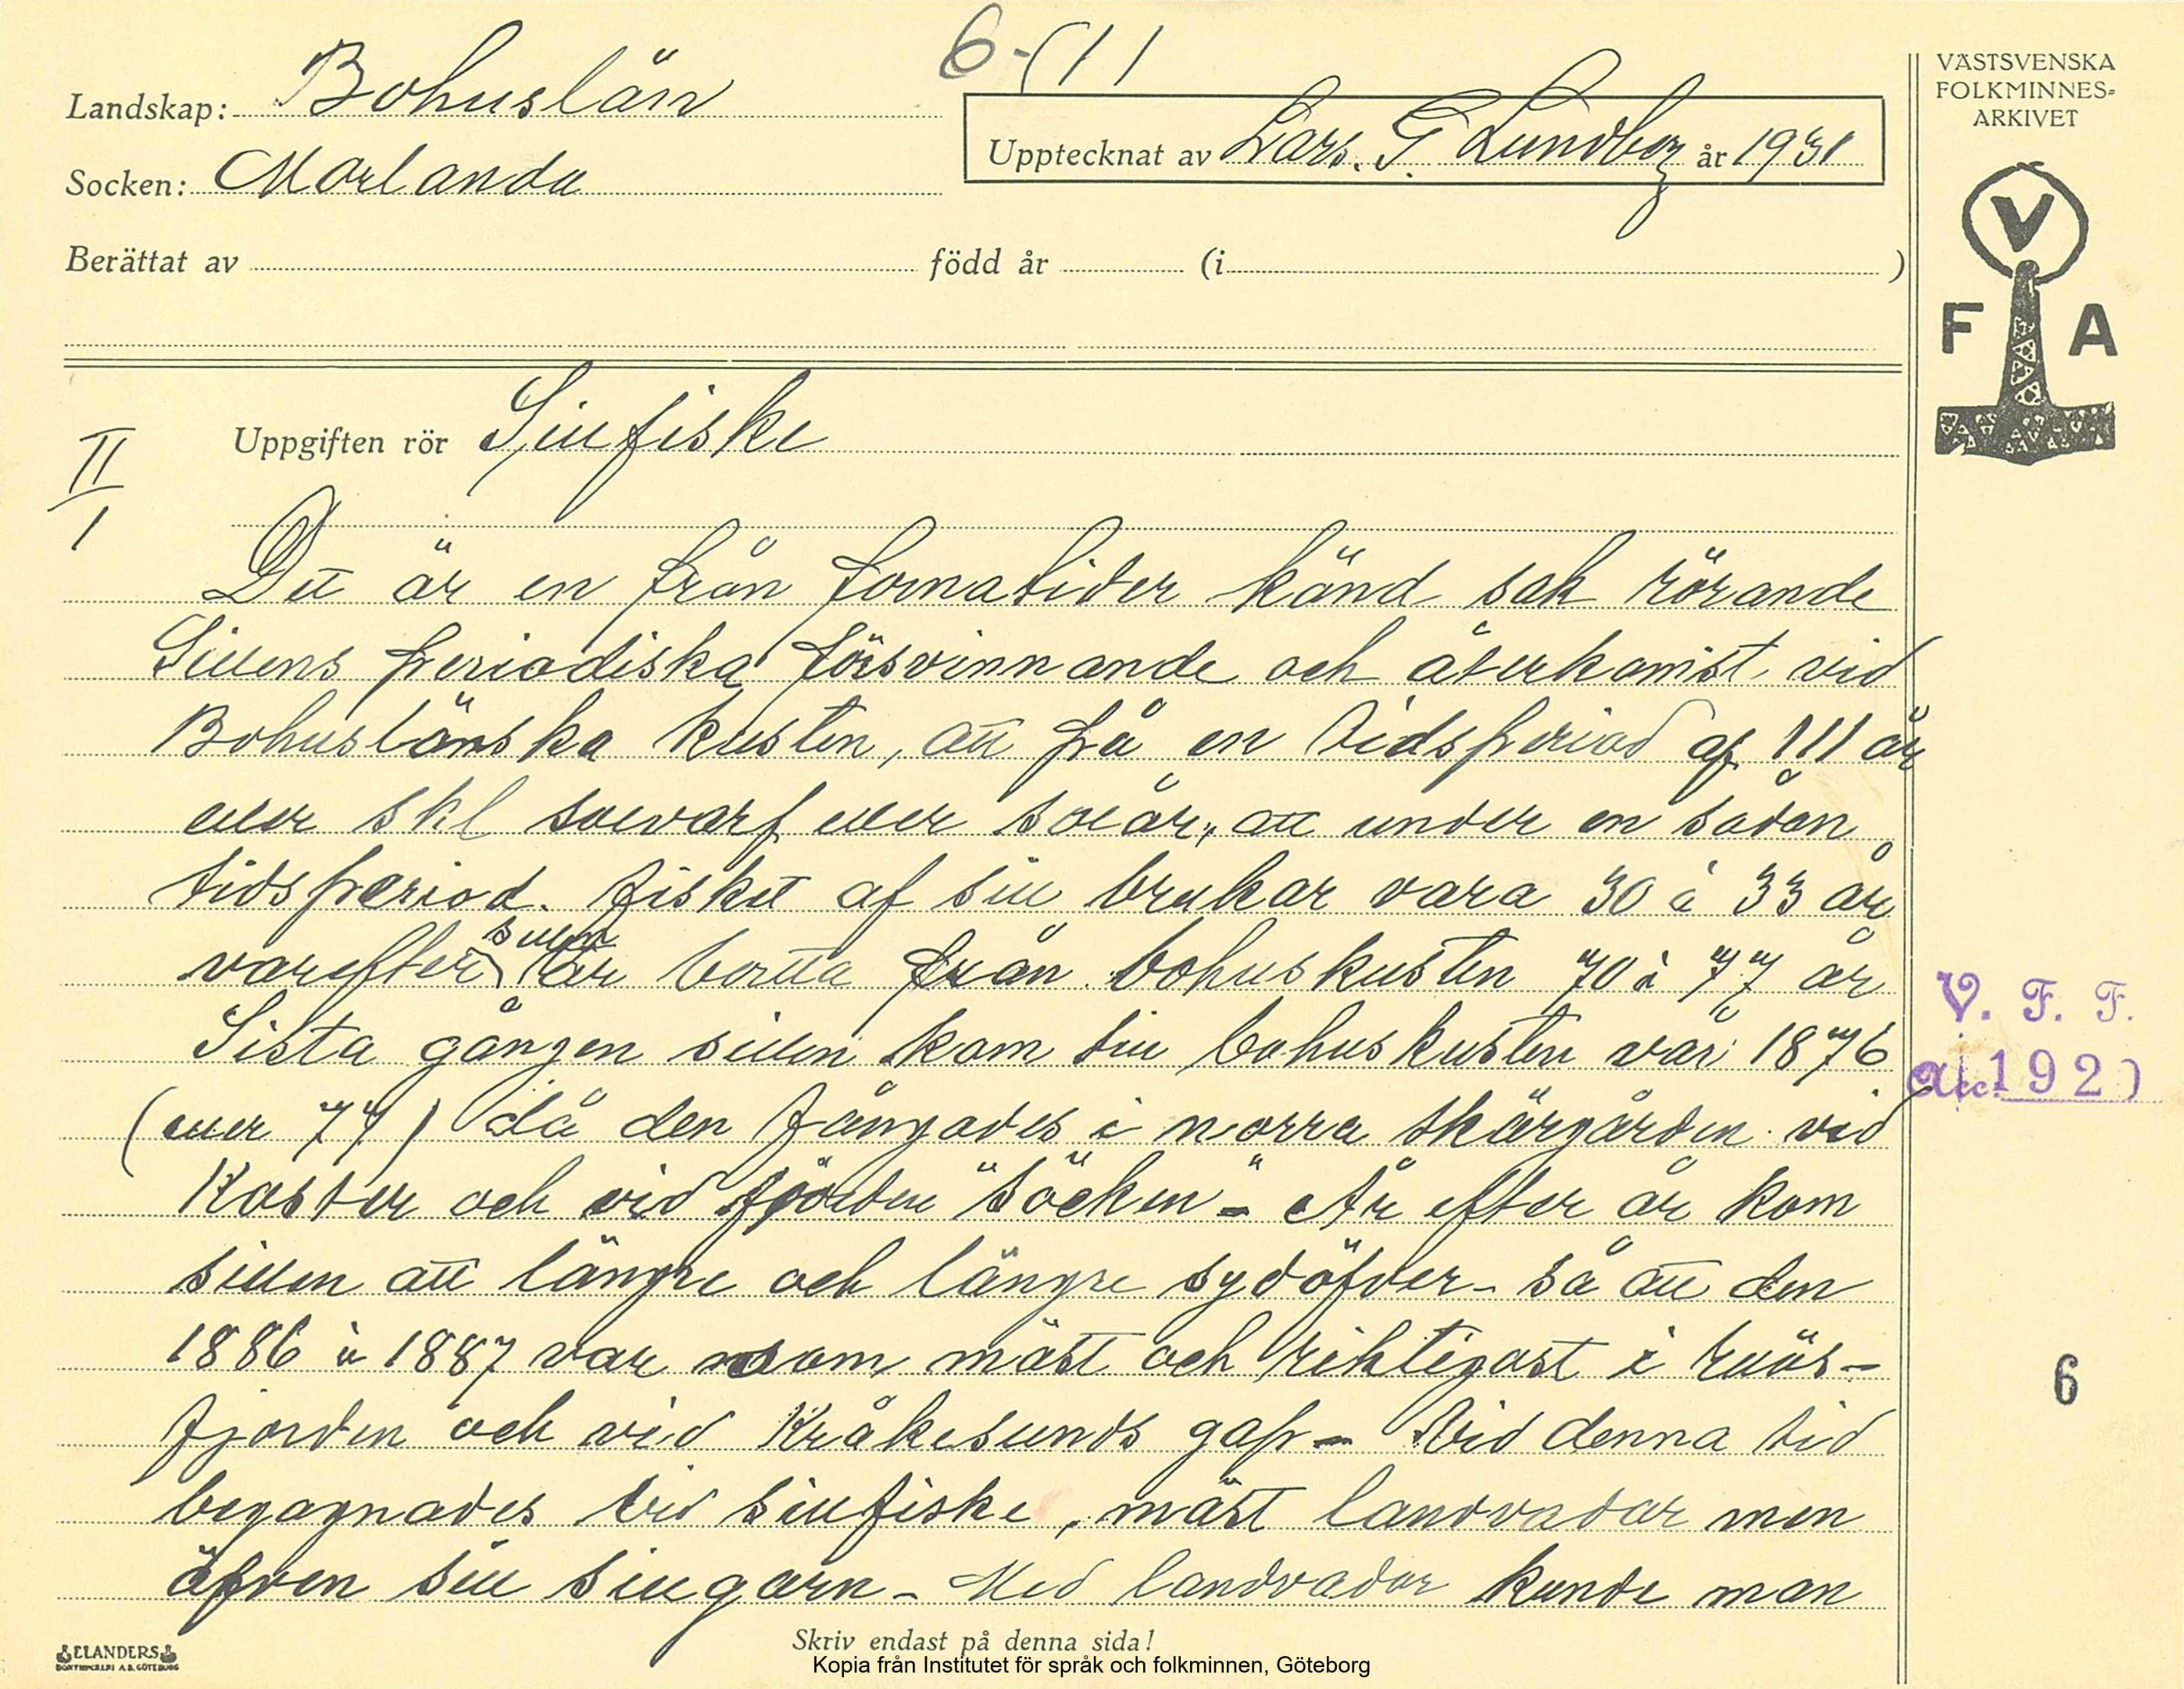 6-11
Landskap: Bohuslän
Socken: Morlanda
Upptecknat av Lars. G. Lundborg år 1931
Berättat av född år (i )
VÄSTSVENSKA
FOLKMINNES-
ARKIVET
V
F A
II
1
Uppgiften rör Sillfiske
Det är en från fornatider känd sak rörande
Sillens periodiska försvinnande och återkomst, vid
Bohuslänska kusten, att på en tidsperiod af 111 år
eller skl solvarf eller solår, att under en sådan
tidsperiod. fisket af sill brukar vara 30 à 33 år
varefter sillen är borta från bohuskusten 70 à 77 år
Sista gången sillen kom till bohuskusten var 1876
(eller 77) då den fångades i norra skärgården vid
Koster och vid fjörden "Söcken" - År efter år kom
sillen att längre och längre sydöfver - så att den
1886 à 1887 var som mäst och riktigast i
fjorden och vid Kråkesunds gap - Vid denna tid
begagnades vid sillfiske, mäst landvadar men
äfven sill sillgarn - Med landvadar kunde man
V. F. F.
Acc. 192)
6
ELANDERS
BOKTRYCKERI A.B. GÖTEBORG
Skriv endast på denna sida!
Kopia från Institutet för språk och folkminnen, Göteborg